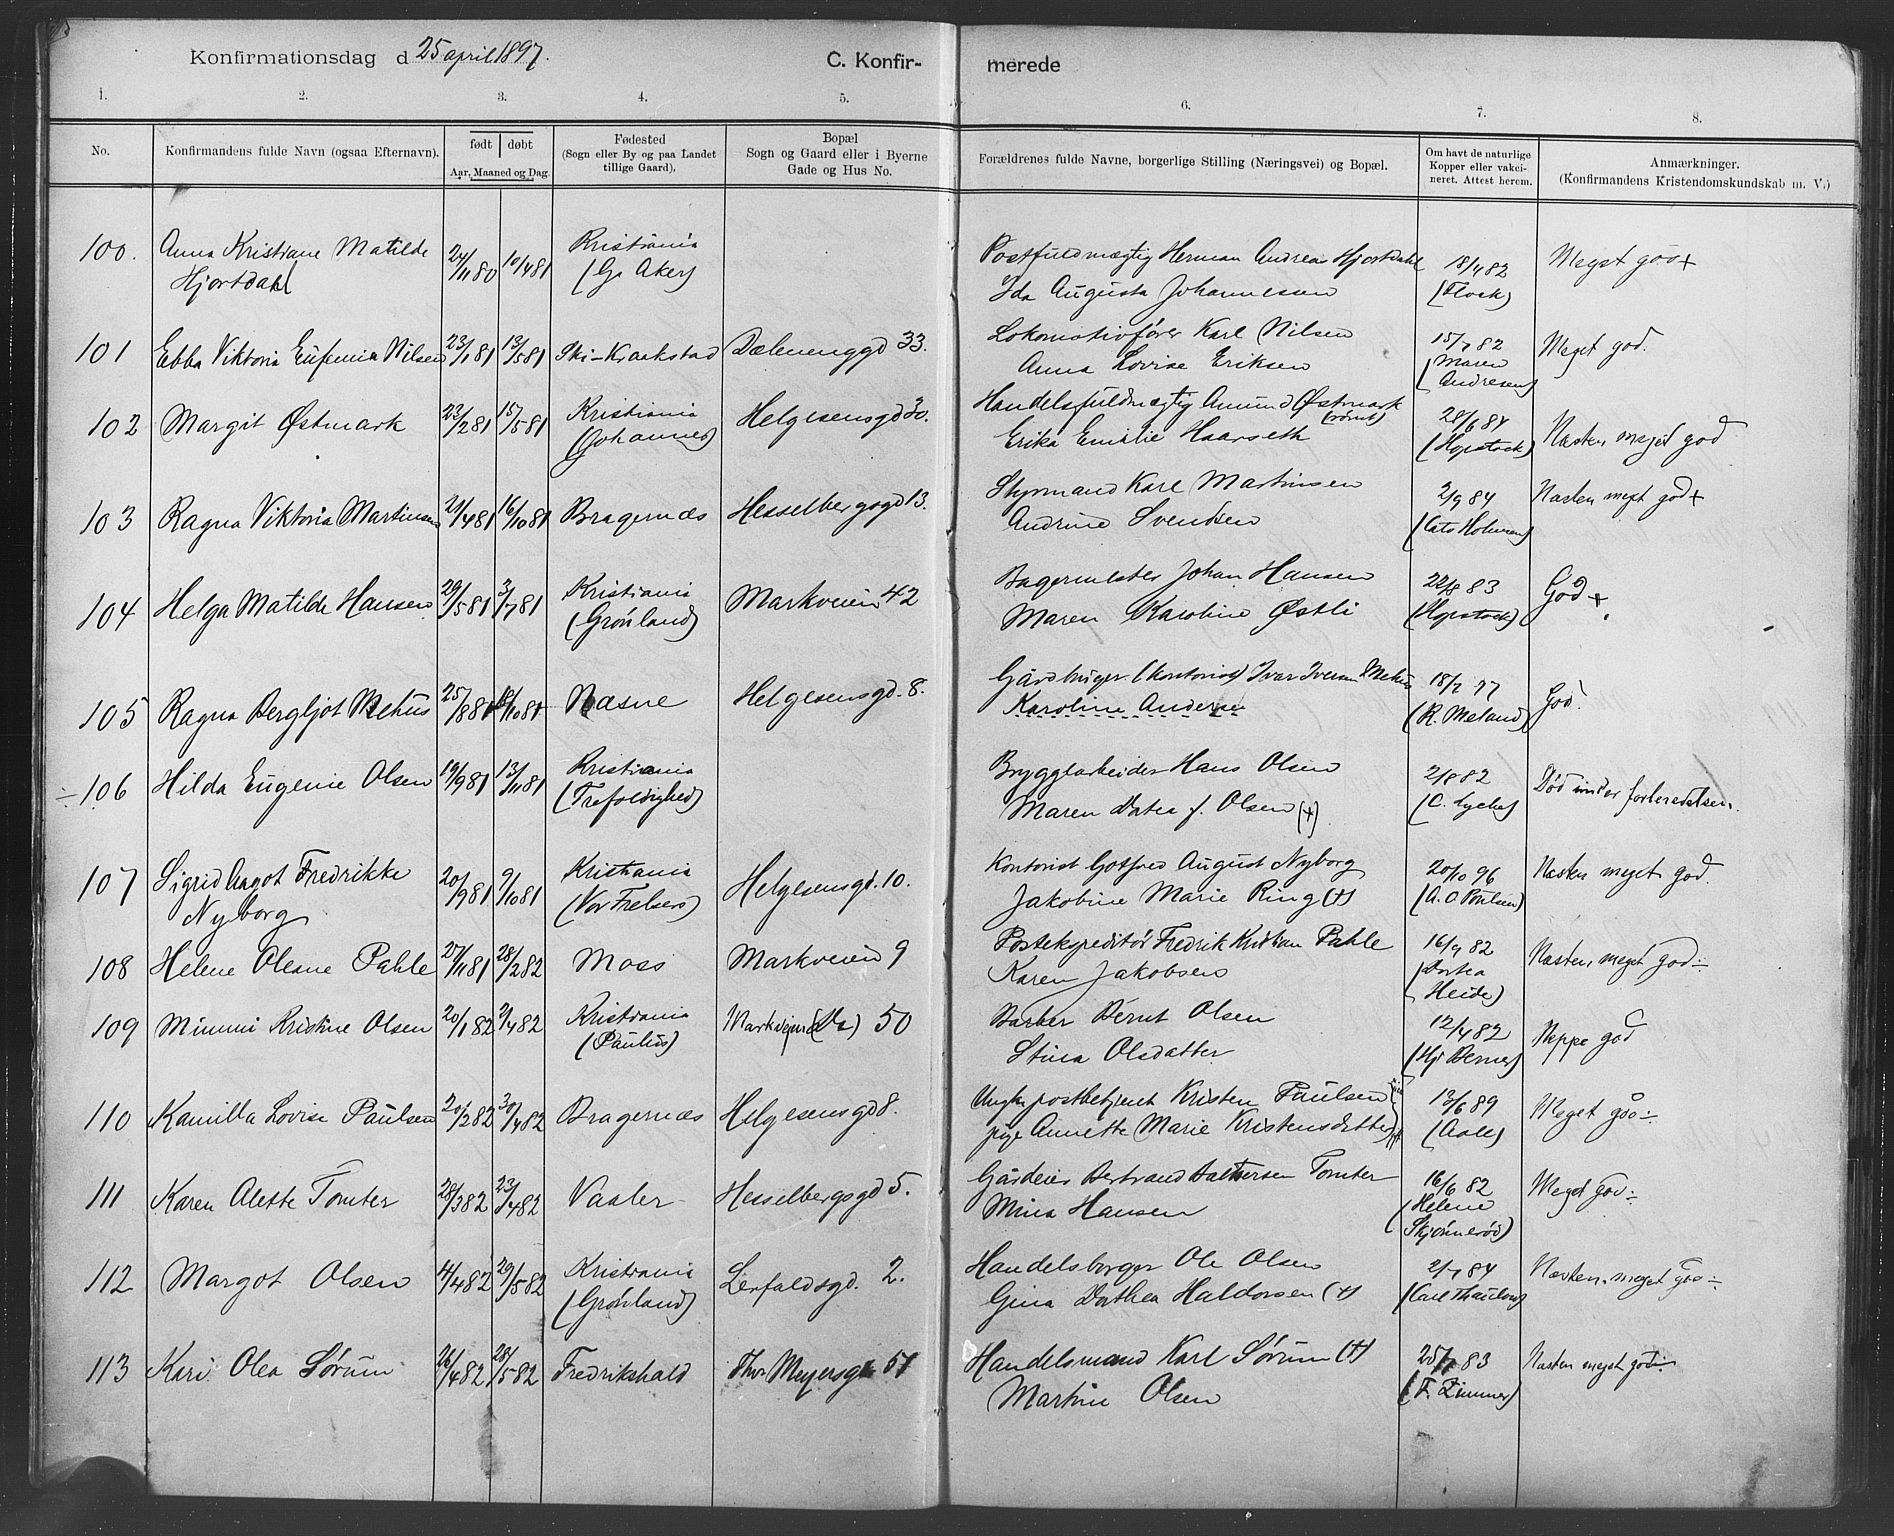 Konfirmationsdag d 25 april 1897. C. Konfir- merede
1. 2. 3. 4. 5. 6. 7. 8.
No. Konfirmandens fulde Navn (ogsaa Efternavn). født døbt Aar, Maaned og Dag. Fødested (Sogn eller By og paa Landet tillige Gaard). Bopæl Sogn og Gaard eller i Byerne Gade og Hus No. Forældrenes fulde Navne, borgerlige Stilling (Næringsvei) og Bopæl. Om havt de naturlige Kopper eller vakcineret. Attest herom. Anmærkninger. (Konfirmandens Kristendomskundskab m. V.)
100. Anna Kristiane Matilde 24/11 80 10/4 81 Kristiania Postfuldmægtig Herman Andreas Hjortdahl 18/4 82 Meget god +
Hjortdahl (Gl Aker) Ida Augusta Johannesen (Flock)
101 Ebba Viktoria Eufemia Nilsen 23/1 81 13/5 81 Ski-Kraakstad Dælenenggd 33. Lokomotivfører Karl Nilsen 15/7 82 Meget god.
Anna Lovise Eriksen (Maren Andresen)
102 Margit Østmark 23/2 81 15/5 81 Kristiania Helgesensgd 30. Handelsfuldmægtig Amund Østmark 28/6 84 Næsten meget god
(Johannes) Erika Emilie Haarseth (Hopstock)
103 Ragna Viktoria Martinsen 21/4 81 16/10 81 Bragernæs Hesselbergsgd 13. Styrmand Karl Martinsen 2/9 84 Næsten meget god +
Andrine Svendsen (Cato Holmsen)
104 Helga Matilde Hansen 29/5 81 3/7 81 Kristiania Markveien 42 Bagermester Johan Hansen 22/8 83 God +
(Grønland) Maren Karoline Østli (Hopstock)
105 Ragna Bergljot Mehus 25/8 81 /10 81 Næsne Helgesensgd. 8. Gårdbruger (kontorist) Ivar Iversen Mehus 18/2 97 God.
Karoline Andersen (R. Meland)
÷ 106 Hilda Eugenie Olsen 19/9 81 13/11 81 Kristiania Bryggearbeider Hans Olsen 2/8 82 Død under forberedelsen.
(Trefoldighed) Maren Dortea f. Olsen (+) (C. Lyche)
107 Sigrid Aagot Fredrikke 20/9 81 9/10 81 Kristiania Helgesensgd. 10. Kontorist Gotfred August Nyborg 20/10 96 Næsten meget god.
Nyborg (Vor Frelsers) Jakobine Marie Ring (+) (A. O. Poulsen)
108 Helene Olesne Pahle 27/11 81 28/2 82 Moss Markveien 9 Postekspeditør Fredrik Kristian Pahle 16/9 82 Næsten meget god ÷
Karen Jakobsen (Dortea Heide)
109 Mimmi Kristine Olsen 20/1 82 2/4 82 Kristiania Markveien 50 Barber Bernt Olsen 12/4 82 Neppe god
(Paulus) Stina Olsdatter (Hj. Berner)
110 Kamilla Lovise Paulsen 20/2 82 30/4 82 Bragernæs Helgesensgd 8. Ungk. postbetjent Kristen Paulsen 13/6 89 Meget god ÷
pige Annette Marie Kristensdatter (Aall)
111 Karen Alette Tomter 28/3 82 23/4 82 Vaaler Hesselbergsgd 5. Gårdeier Bertrand Baltsersen Tomter 16/6 82 Meget god ÷
Mina Hansen (Helene Skjønnerød)
112 Margot Olsen 4/4 82 29/5 82 Kristiania Leirfaldsgd. 2. Handelsborger Ole Olsen 2/7 84 Næsten meget god ÷
(Grønland) Gina Dorthea Haldorsen (+) (Carl Thaulow)
113 Kari Olea Sørum 26/4 82 28/5 82 Fredrikshald Thv. Meyersgd 51 Handelsmand Karl Sørum (+) 25/ 83 Næsten meget god ÷
Martine Olsen (F. Zimmer)